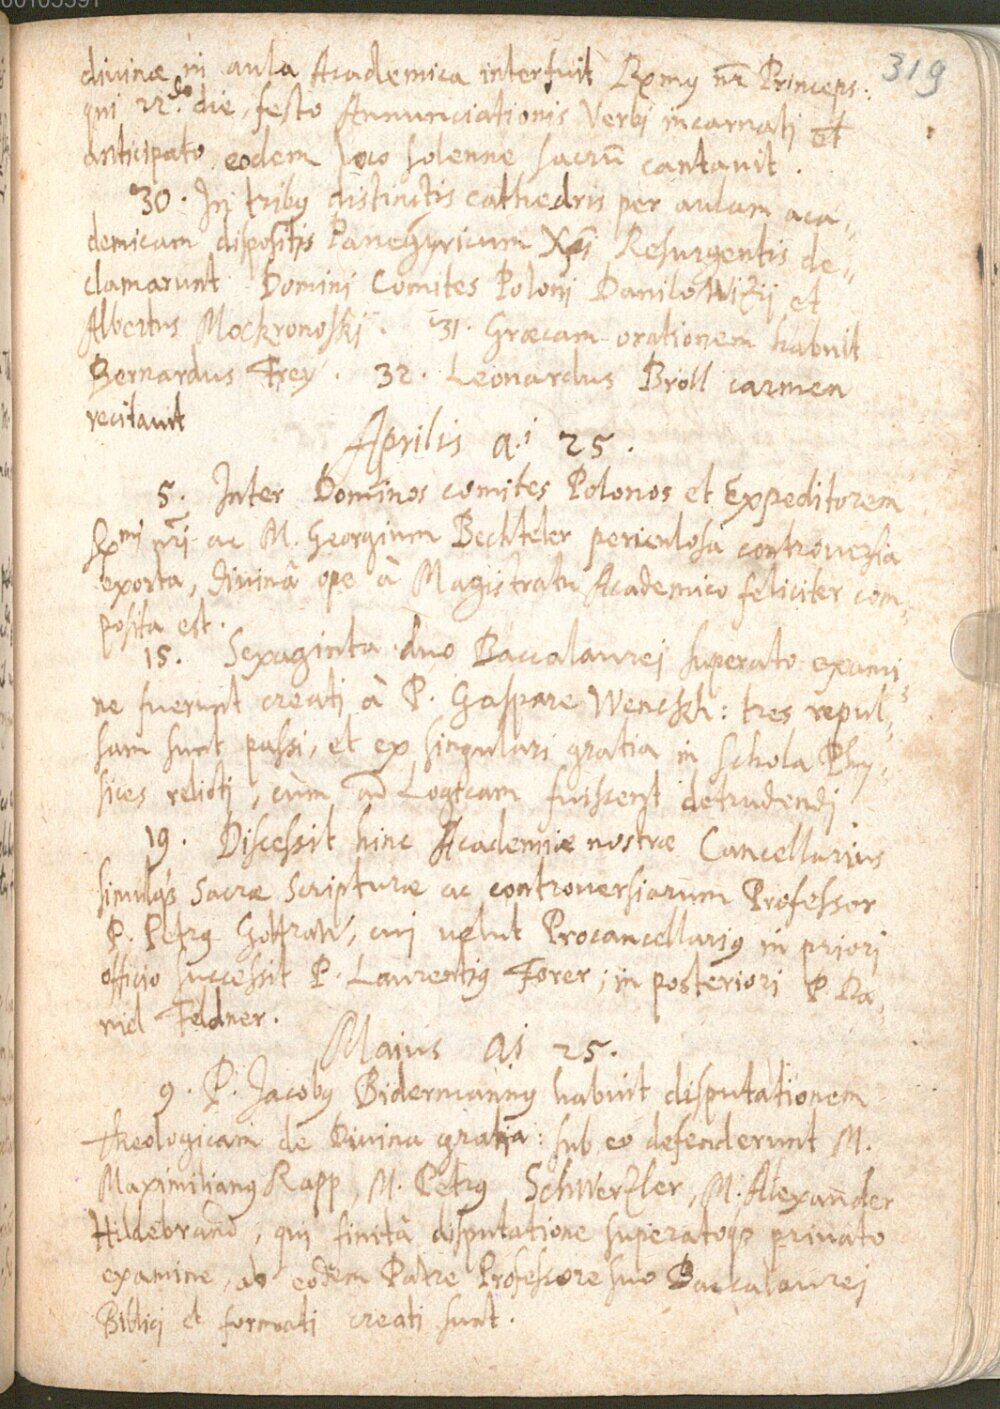 00105591
319
divinæ in aula Academica interfuit Rxmy nr̃ Princeps:
qui 22.do die, festo Annunciationis Verbi incarnati et
anticipato eodem loco solenne sacrũ cantauit.
30. In tribq distinctis cathedris per aulam aca„
demicam dispositis Panegyricum Xpi Resurgentis de„
clamarunt Domini Comites Poloni Danilowizij et
Albertus Mockronoskj. 31. Græcam orationem habuit
Bernardus Frey. 32. Leonardus Bröll carmen
recitauit
Aprilis a.i 25.
5. Inter Dominos comites Polonos et Expeditorem
Rxmi nr̃i ac M. Georgium Bechteler periculosa controuersia
exorta, diuinâ ope à Magistratu Academico feliciter com„
posita est.
15. Sexaginta duo Baccalaurei superato exami„
ne fuerunt creati à P. Gaspare Wenckh: tres repul„
sam sunt passi, et ex singulari gratia in schola Phy„
sices relicti, cùm ad Logicam fuissent detrudendi
19. Discessit hinc Academiæ nostræ Cancellarius
simulq3 Sacræ Scripturæ ac controuersiarum Professor
P. Petrq Gottraw, cui uelut Procancellariq in priori
officio successit P. Laurentiq Forer; in posteriori P. Da„
niel Feldner.
Maius ai 25.
9. P. Jacobq Bidermannq habuit disputationem
theologicam de Diuina gratia: sub eo defenderunt M.
Maximilianq Rapp, M. Petrq Schwerzler, M. Alexander
Hildebrand, qui finitâ disputatione superatoq3 priuato
examine, ab eodem Patre Professore suo Baccalaurei
Biblici et formati creati sunt.